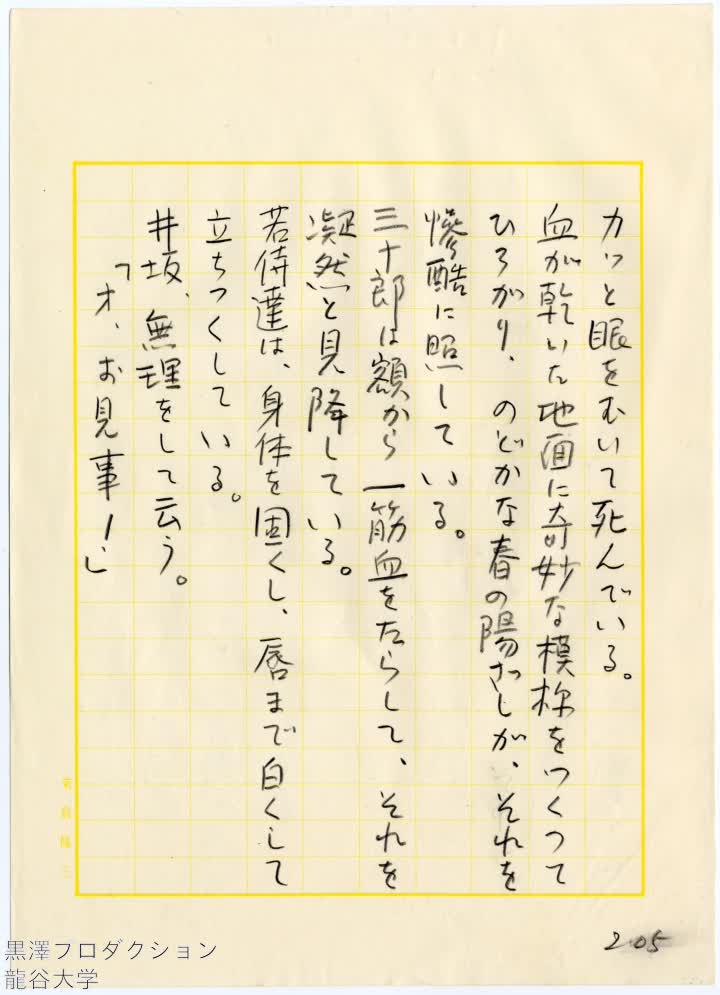 カッと眼をむいて死んでいる。
血が乾いた地面に奇妙な模様をつくつて
ひろがり、のどかな春の陽ざしが、それを
惨酷に照している。
三十郎は額から一筋血をたらして、それを
凝然と見降している。
若侍達は、身体を固くし、唇まで白くして
立ちつくしている。
井坂、無理をして云う。
「オ、お見事！」
205
黒澤プロダクション
龍谷大学